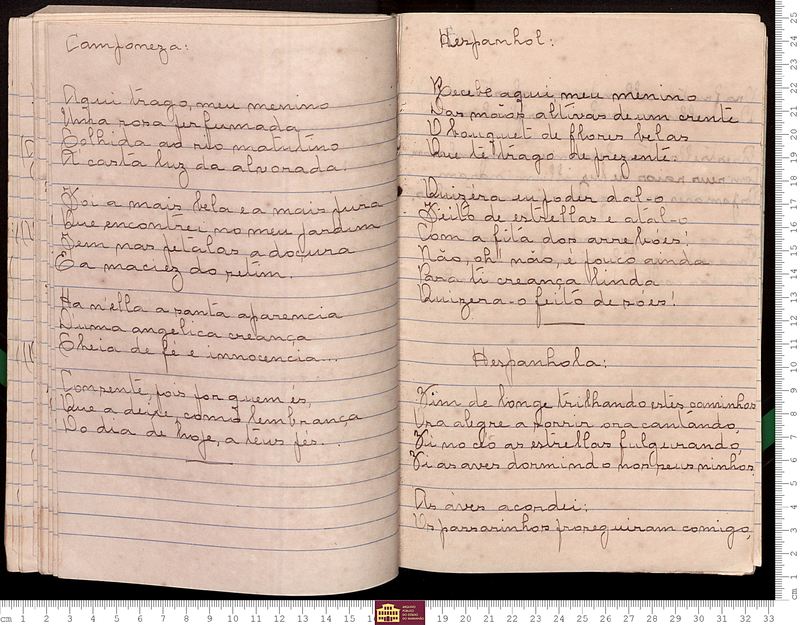 Camponeza:
Aqui trago, meu menino
Uma rosa perfumada
Colhida ao rio matutino
A casta luz da alvorada.
Foi a mais bela e a mais pura
Que encontrei no meu jardim
Tem nas petalas a doçura
E a maciez do setim.
Ha n'ella a santa aparencia
D'uma angelica creança
Cheia de fé e innocencia...
Consente, pois por quem és,
Que a deixe como lembrança
Do dia de hoje, a teus pés.
Hespanhol:
Recebe aqui meu menino
Das mãos altivas de um crente
O bouquet de flores belas
Que te trago de prezente.
Quizéra eu poder dal-o
Feito de estrellas e atal-o
Com a fita dos arrebóes!
Não, oh! não, é pouco ainda
Para ti creança linda
Quizera-o feito de sóes!
Hespanhola:
Vim de longe trilhando estes caminhos
Ora alegre a sorrir ora cantando,
Vi no céo as estrellas fulgurando,
Vi as aves dormindo nos seus ninhos
As aves acordei:
Os passarinhos proseguiram comigo,
cm 1 2 3 4 5 6 7 8 9 10 11 12 13 14 15 16 19 20 21 22 23 24 25 26 27 28 29 30 31 32 33
25 24 23 22 21 20 19 18 17 16 15 14 13 12 11 10 9 8 7 6 5 4 3 2 1 cm
ARQUIVO
PÚBLICO
DO ESTADO
DO MARANHÃO